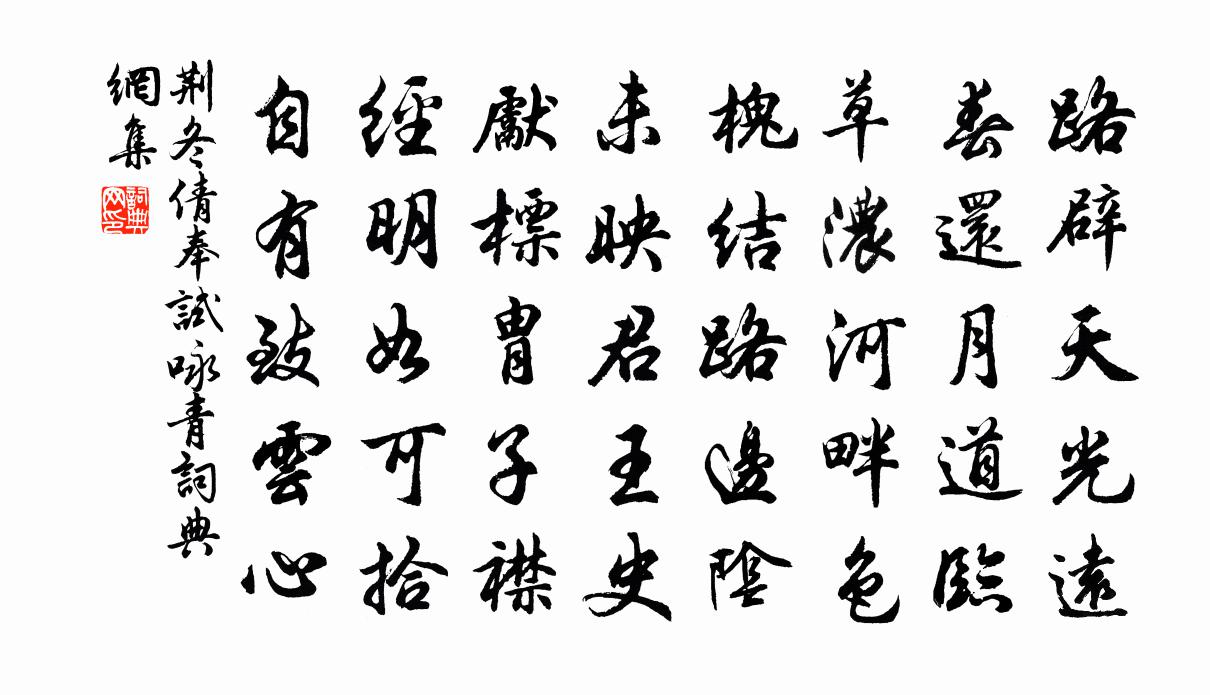 路辟天光遠
春還月道臨
草濃河畔色
槐結路邊陰
未映君王史
獻標胄子襟
經明如可拾
自有致雲心
荆冬倩奉試咏青詞典
網集
詞典網印